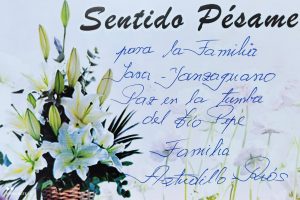 Sentido Pésame
para la Familia
Jara - Yanzaguano
Paz en la tumba
del tio Pepe
Familia
Astudillo